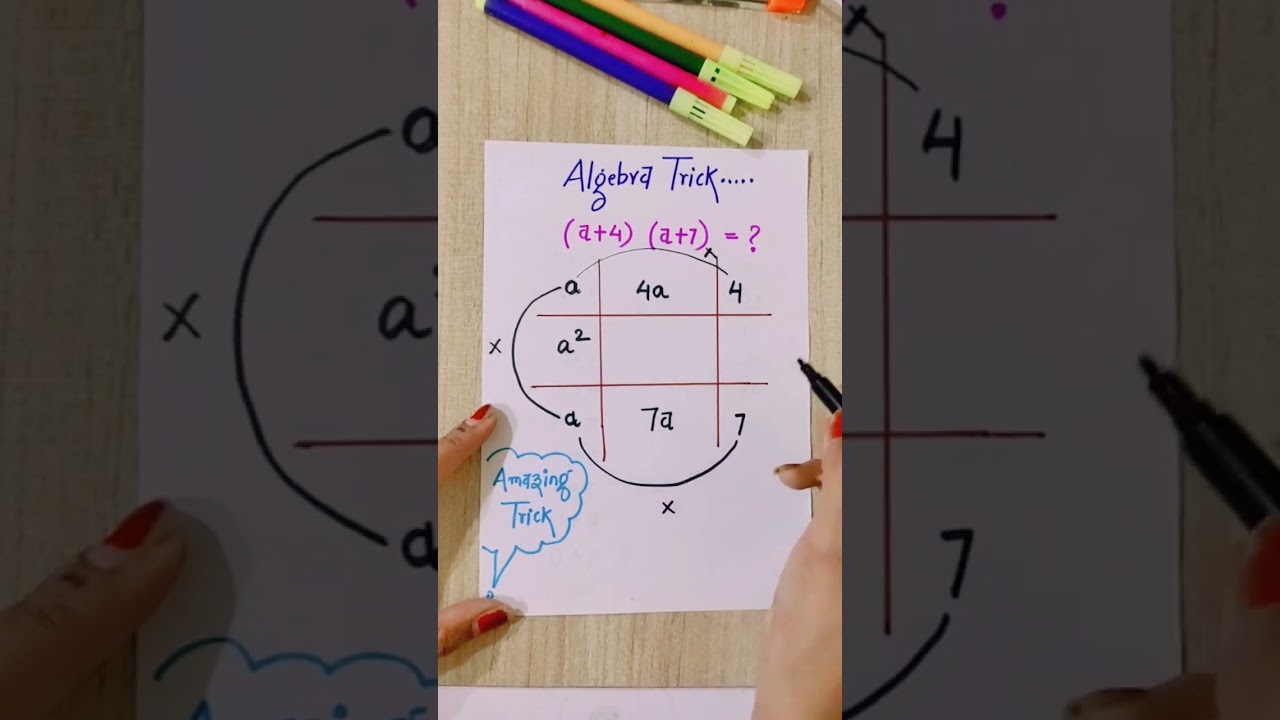 Algebra Trick.....
(a+4) (a+7) = ?
a 4a 4
x a²
a 7a 7
x
Amazing
Trick